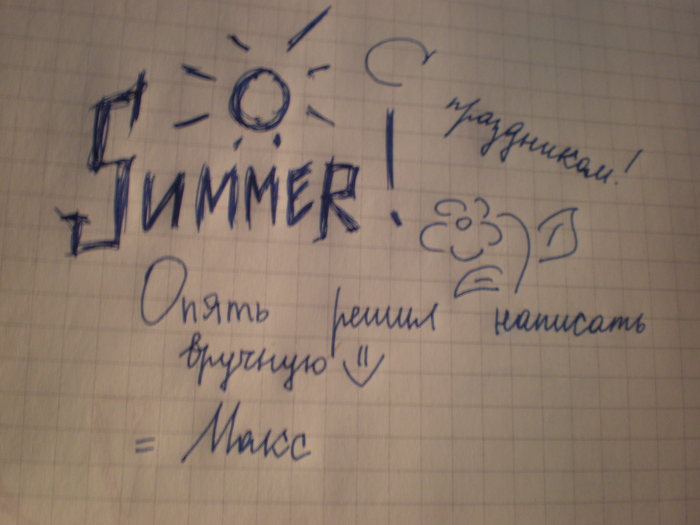 SUMMER!
С праздником!
Опять решил написать
вручную =)
= Макс